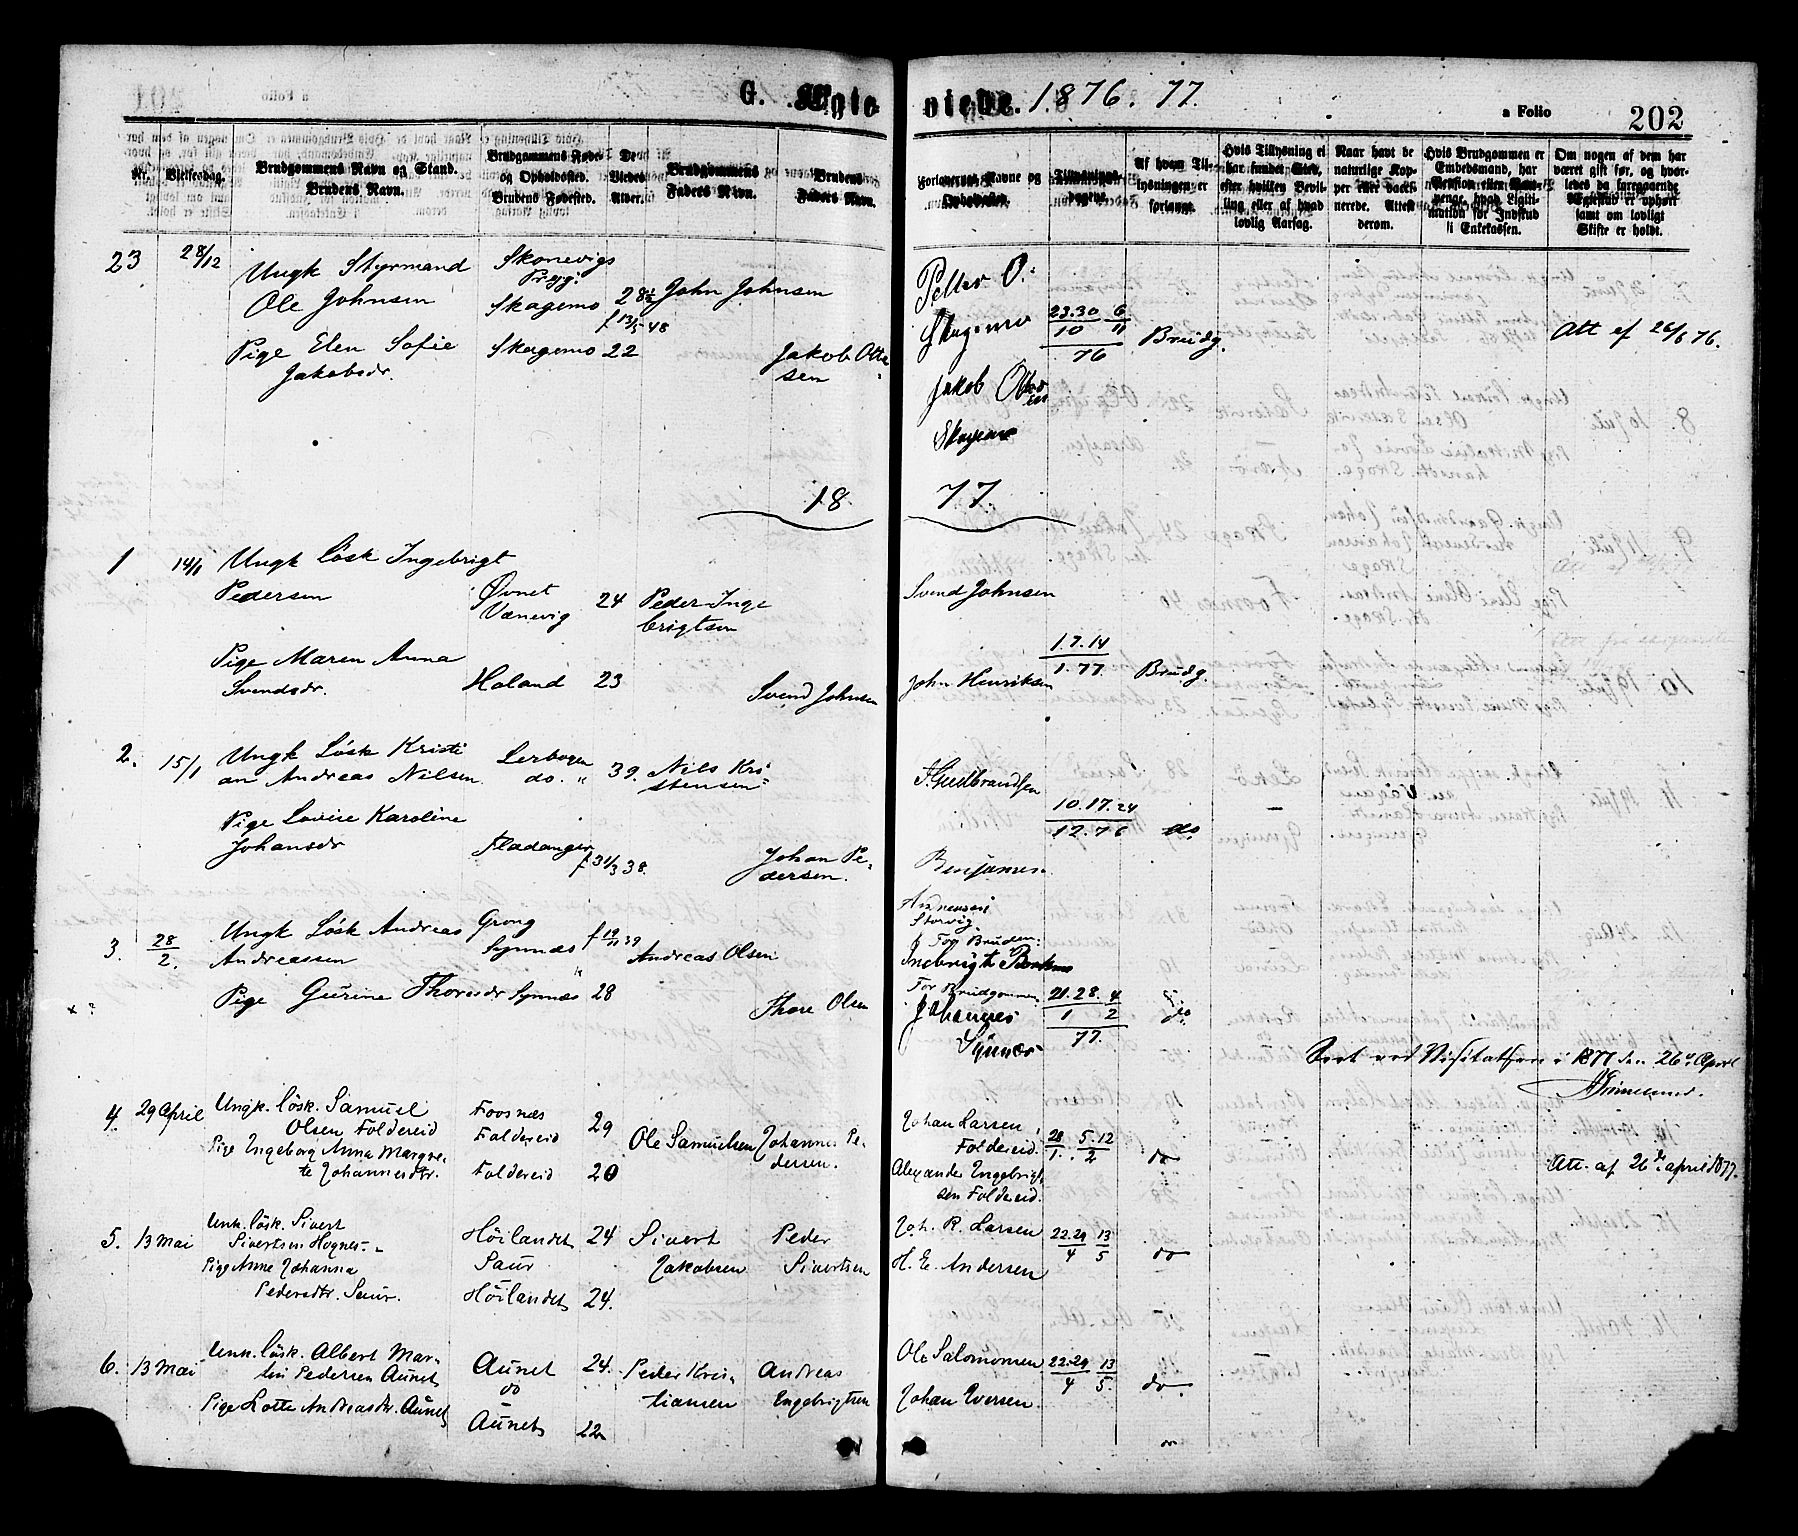 G. Ægte
viede. 1876. 77.
a Folio 202
Nr.
Vielsesdag.
Brudgommens Navn og Stand.
Brudens Navn.
Brudgommens Føde-
og Opholdssted.
Brudens Fødested.
De
Viedes
Alder.
Brudgommens
Faders Navn.
Brudens
Faders Navn.
Forlovernes Navne og
Opholdssted.
Tillysnings-
dagene.
Af hvem Til-
lysningen er
forlangt.
Hvis Tillysning ei
har fundet Sted,
efter hvilken Bevil-
ling eller af hvad
lovlig Aarsag.
Naar havt de
naturlige Kop-
per eller vacci-
nerede. Attest
derom.
Hvis Brudgommen er
Embedsmand, har
Pension eller Vaa-
penge, hvad Ligiti-
mation for Indskud
i Enkekassen.
Om nogen af dem har
været gift før, og hvor-
ledes da foregaaende
Ægteskab er ophørt
samt om lovligt
Skifte er holdt.
23 28/12 Ungk Styrmand
Ole Johnsen
Skonevigs
Prgj:
Skagemo 28½ John Johnsen
f 13/5 48
Pige Elen Sofie
Jakobsdr.
Skagemo 22 Jakob Otte-
sen
Petter O.
Skagemo 23.30 6
10 11
76 Brudg. Att af 26/6 76.
Jakob Otte
sen
Skagemo
18 77.
1 14/1 Ungk Løsk Ingebrigt
Pedersen
Øvnet
Vanevig 24 Peder Inge
brigtsen
Svend Johnsen
Pige Maren Anna
Svendsdr. Haland 23 Svend Johnsen
John Henriksen 1.7.14
1.77. Brudg.
2. 15/1 Ungk Løsk Kristi
an Andreas Nilsen
Lerbogen
do. " 39. Nils Kri-
stensen
Pige Lovise Karoline
Johansdr Fladanger f 31/3 38. Johan Pe-
dersen.
Gudbrandsen
10.17.24
12.76 do
Benjamin
3. 28/2. Ungk Løsk Andreas
Andreassen
Grong
Synnæs f 19/11 39 Andreas Olsen
x ? Pige Gurine Thoresdr Synnæs 28 Thore Olsen
Andreassen
Storvig
For Bruden:
Inebrigt
For Brudgommen
Johannes
Synnæs
21.28. 4
1 2
77. do
Seet ved Visitatsen i 1877 den 26de April
4. 29 April Ungk. løsk. Samuel
Olsen Foldereid
Foosnæs
Foldereid 29 Ole Samuelsen Johannes Pe-
dersen.
Pige Ingeborg Anna Margre-
te Johannesdtr. Foldereid 20
Johan Larsen,
Foldereid. 28. 5.12
1. 2 do
Alexander Ingebrigt
sen Foldereid.
Att. af 26de april 1877.
5. 13 Mai Unk. løsk. Sivert
Sivertsen Hognes-
Høilandet
Saur 24 Sivert
Jakobsen
Peder
Sivertsen
Pige Anne Johanna
Pedersdtr. Saur. Høilandet 24.
Joh. R. Larsen 22.29 13
4 5 do
H. E. Andersen
6. 13 Mai Unk. løsk. Albert Mar-
tin Pedersen Aunet
Aunet
do 24. Peder Kris-
tiansen
Andreas
Ingebrigtsen
Pige Lotte Andreasdr. Aunet Aunet 22
Ole Salomonsen 22.29 13
4 5. do.
Johan Iversen.